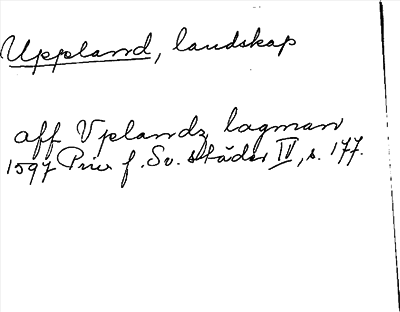 Uppland, landskap
aff Vplandz lagman
1597 Priv f. Sv. städer IV, s. 177.